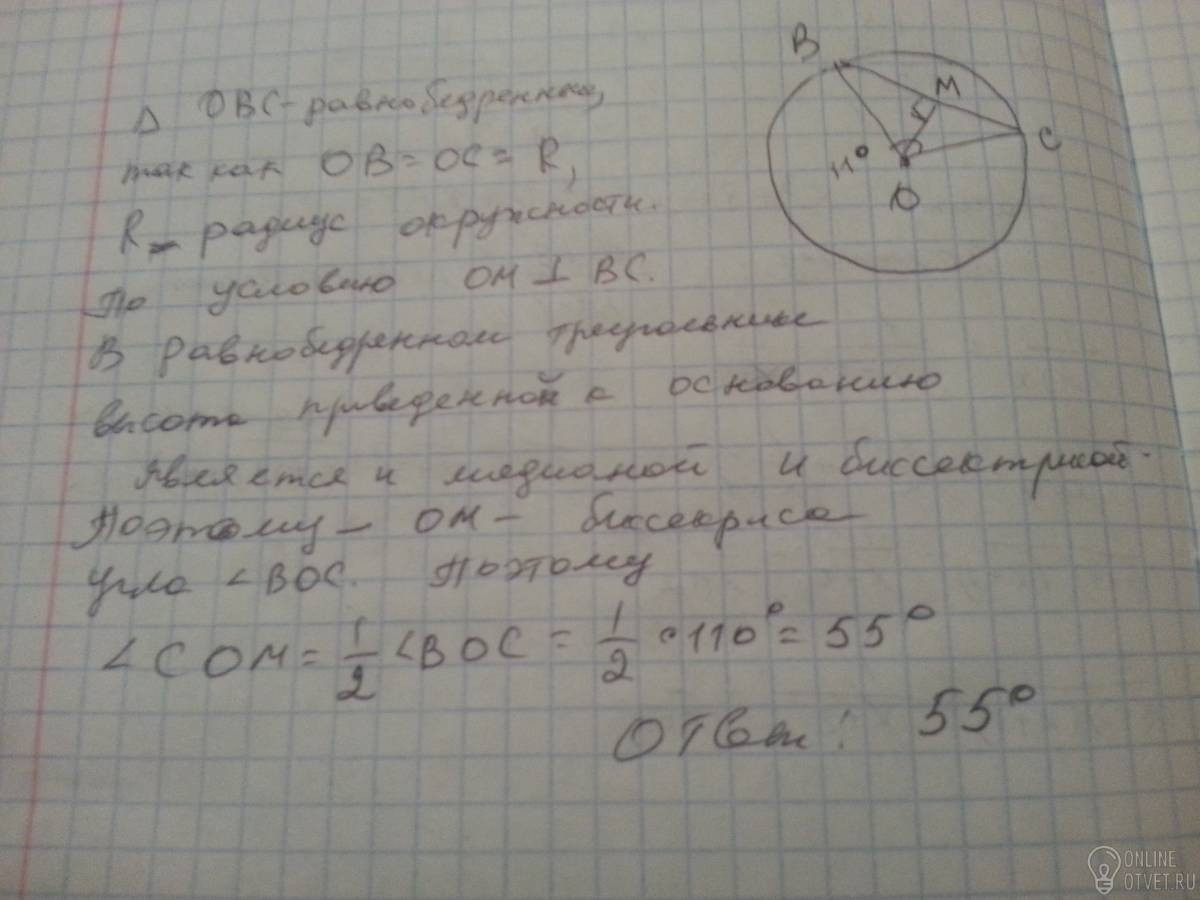 Δ OBC - равнобедренный,
так как OB = OC = R,
R - радиус окружности.
По условию OM ⊥ BC.
В равнобедренном треугольнике
высота приведенной к основанию
является и медианой и биссектрисой.
Поэтому - OM - биссекриса
угла ∠BOC. Поэтому
∠COM = 1/2 ∠BOC = 1/2 · 110° = 55°
Ответ: 55°
B
M
C
11°
O
ONLINE
OTVET.RU